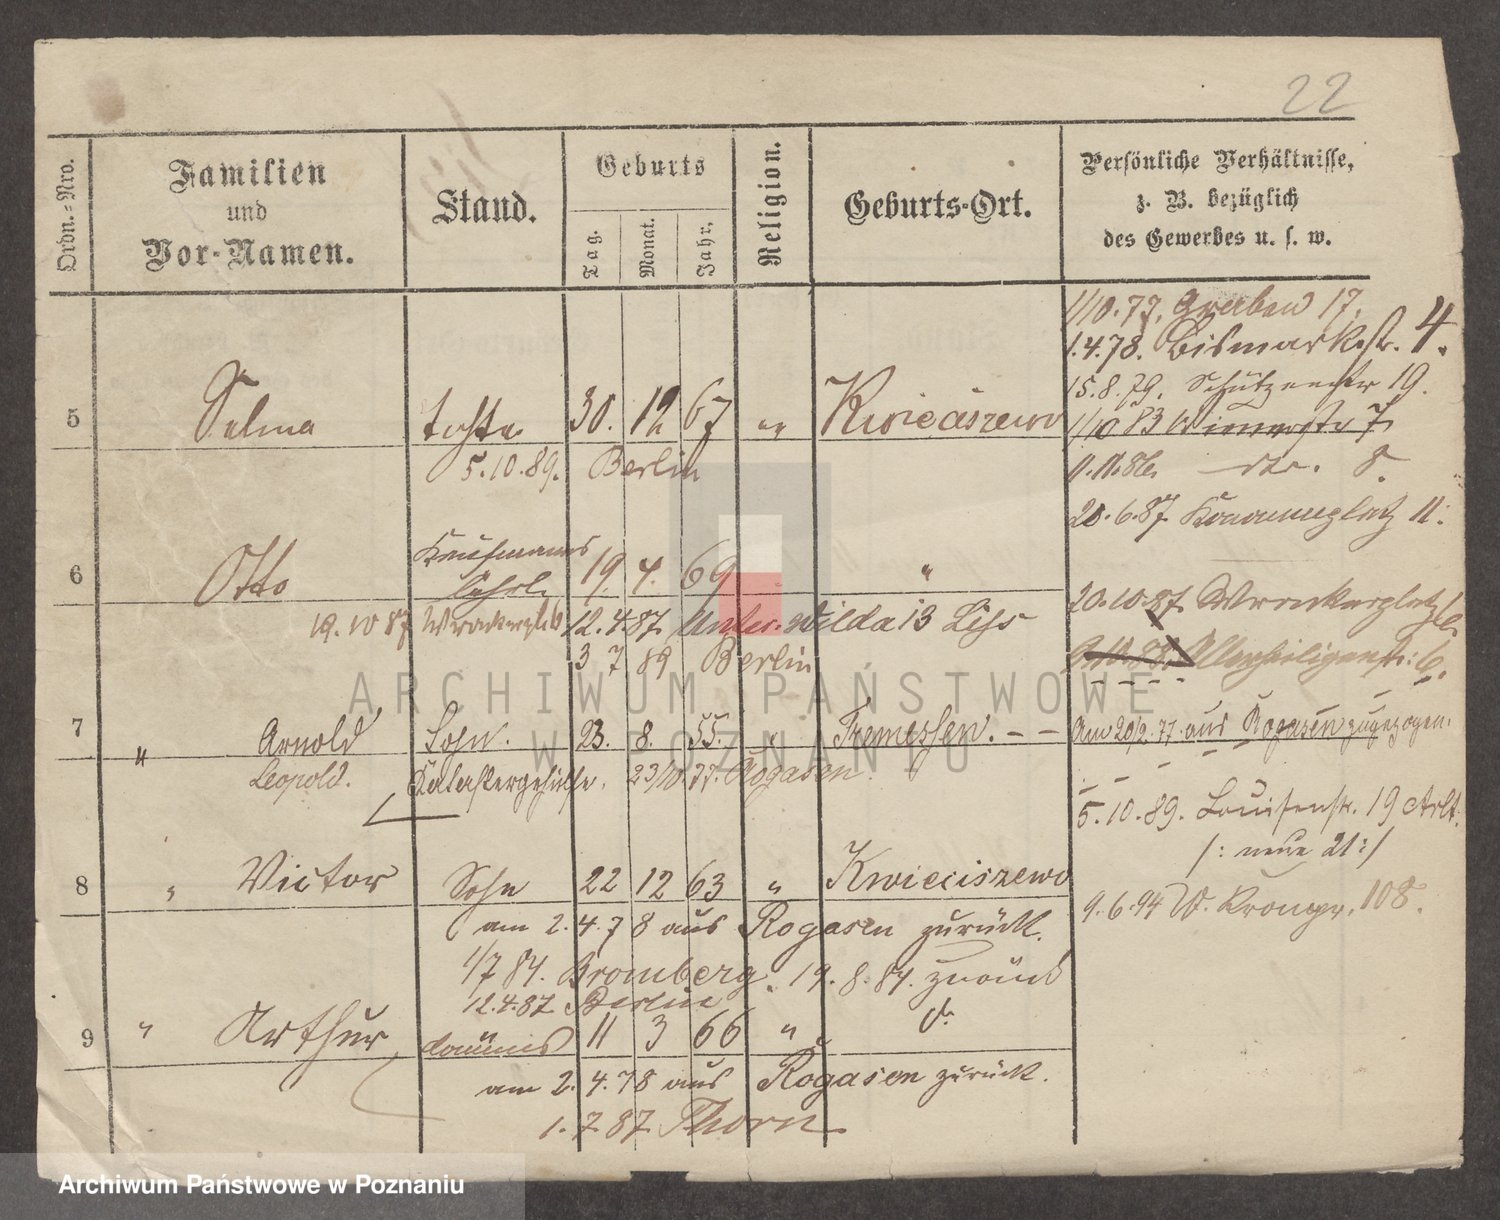 22
Ordn.-Nro.
Familien
und
Vor-Namen.
Stand.
Geburts
Tag.
Monat.
Jahr.
Religion.
Geburts-Ort.
Persönliche Verhältnisse,
z. B. bezüglich
des Gewerbes u. s. w.
1/10.77. Graben 17.
1.4.78. Bismarckstr. 4.
15.8.79. Schützenstr 19.
5 Selma Tochter 30. 12 67 " Kwieciszewo
1/10 83 7
5.10.89. Berlin
11.11.86. dto. 8.
20.6.87 11.
6 Otto Kaufmanns Lehrl. 19. 4. 69 "
20.10.87. Wronkerplatz
19.10 87 Wronkerplatz 12.4.87. Unter-Wilda 13
3 7 89 Berlin
Allerheiligenstr. 6.
7 " Arnold Sohn. 23. 8. 55. " Tremessen. - -
Am 20/2.77. aus Rogasen zugezogen.
Leopold. Katastergehülfe. 23/10.77. Rogasen.
5.10.89. Louisenstr. 19
/: neue 21 :/
8 " Victor Sohn 22 12 63 " Kwieciszewo
am 2.4.78 aus Rogasen zurück.
9.6.94 108.
1/7 84. Bromberg. 19.8.84. zurück
12.4.87. Berlin
9 " Arthur 11 3 66 "
am 2.4.78 aus Rogasen zurück.
1.7.87. Thorn
ARCHIWUM PAŃSTWOWE
W POZNANIU
Archiwum Państwowe w Poznaniu